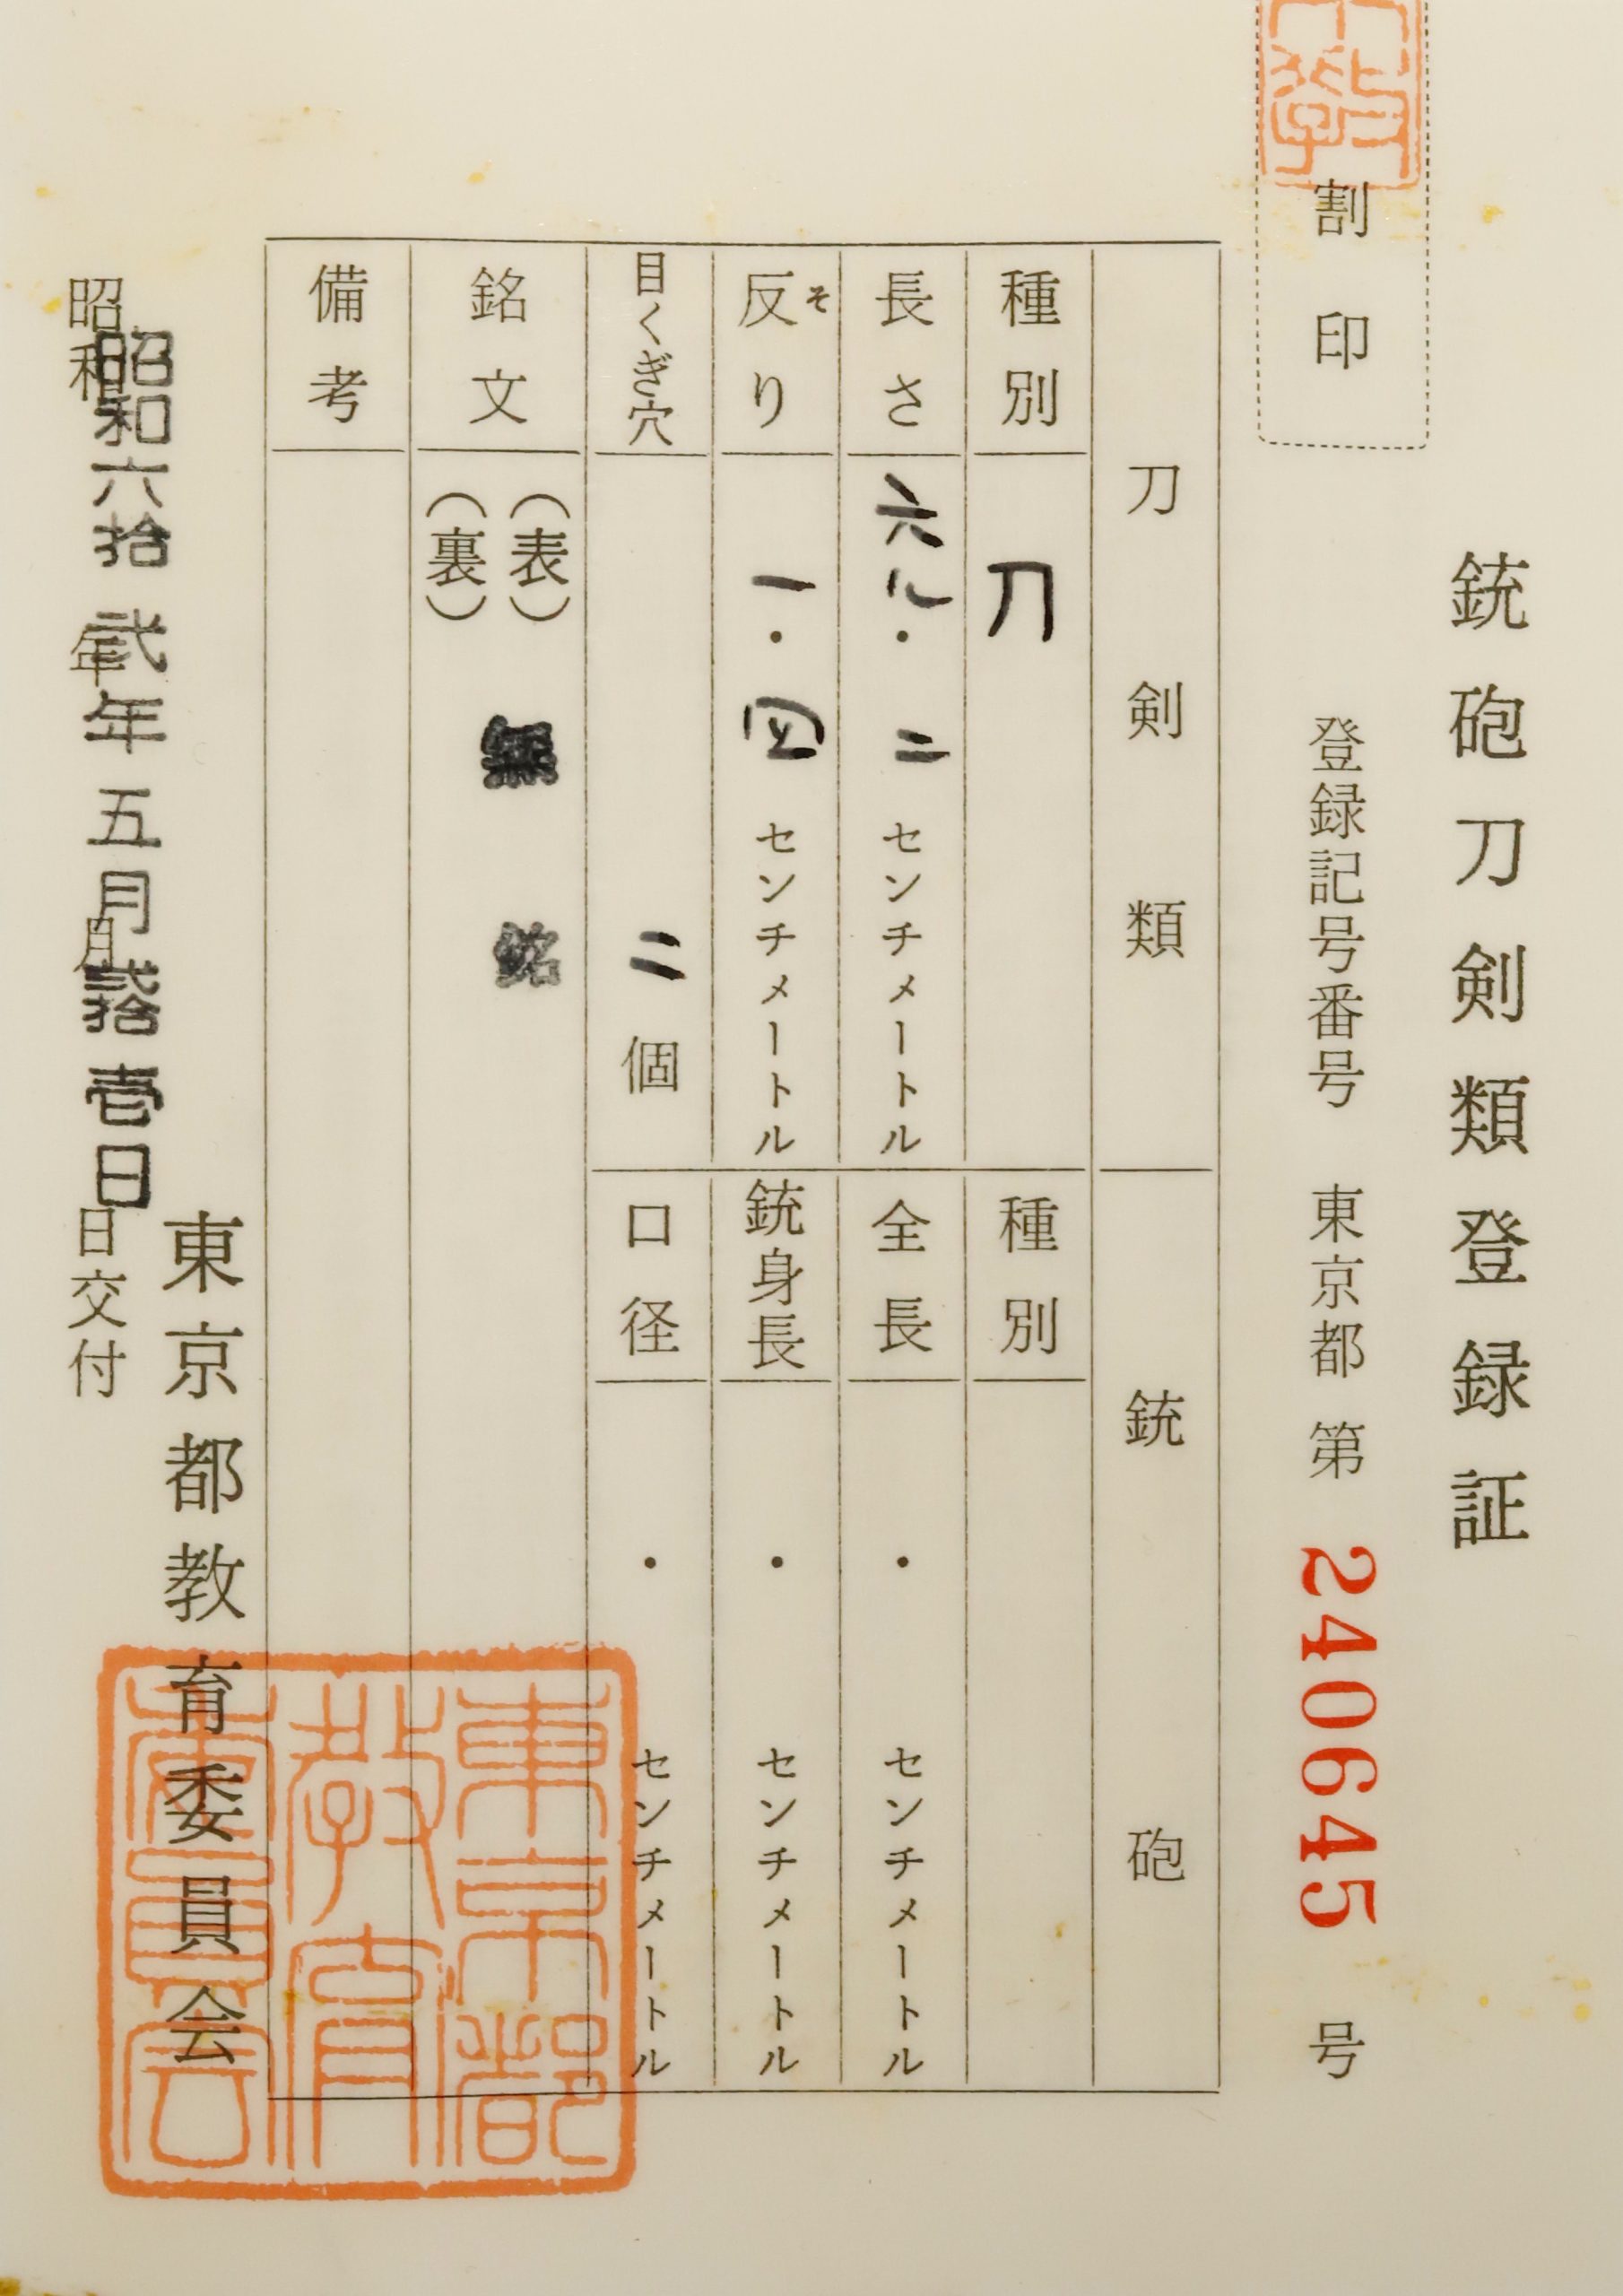 銃砲刀剣類登録証
割印
登録記号番号 東京都 第 240645 号
刀剣類
銃砲
種別 刀
種別
長さ 六八・二 センチメートル
全長 ・ センチメートル
反り そ 一・四 センチメートル
銃身長 ・ センチメートル
目くぎ穴 二個
口径 ・ センチメートル
銘文 (表) 無銘
(裏)
備考
昭和六拾弐年五月弐拾壱日
昭和 年 月 日交付
東京都教育委員会
東京都
教育
委員会